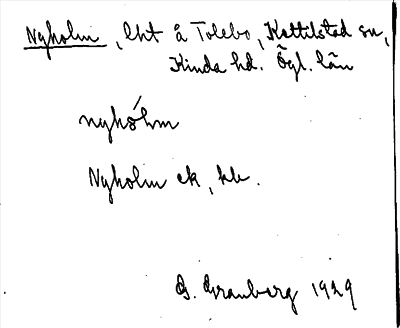 Nyholm, lht å Tolebo, Kättilstad sn,
Kinda hd. Ögl. län
nyhólm
Nyholm ek, kb.
G. Granberg 1929